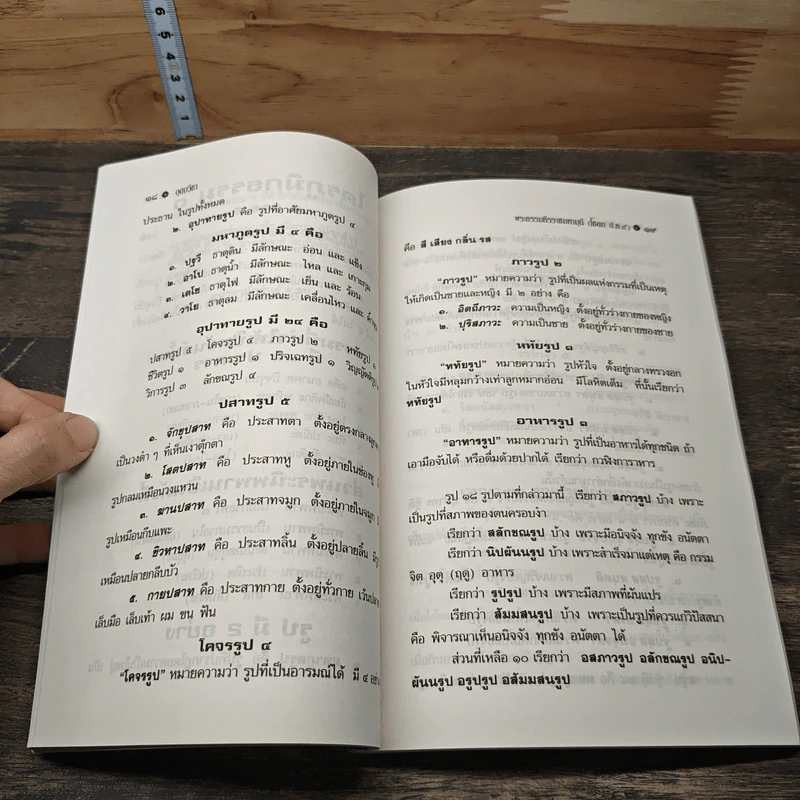 6
5
4
3
2
1
๑๘ อุณมิชา
ประธาน ในรูปทั้งหมด
๒. อุปาทายรูป คือ รูปที่อาศัยมหาภูตรูป ๔
มหาภูตรูป มี ๔ คือ
๑. ปฐวี ธาตุดิน มีลักษณะ อ่อน และ แข็ง
๒. อาโป ธาตุน้ำ มีลักษณะ ไหล และ เกาะกุม
๓. เตโช ธาตุไฟ มีลักษณะ เย็น และ ร้อน
๔. วาโย ธาตุลม มีลักษณะ เคลื่อนไหว และ
อุปาทายรูป มี ๒๔ คือ
ปสาทรูป ๕ โคจรรูป ๔ ภาวรูป ๒ หทัยรูป ๑
ชีวิตรูป ๑ อาหารรูป ๑ ปริจเฉทรูป ๑
วิการรูป ๓ ลักขณรูป ๔
ปสาทรูป ๕
๑. จักขุปสาท คือ ประสาทตา ตั้งอยู่ตรงกลาง
เป็นวงดำ ๆ ที่เห็นเงาตุ๊กตา
๒. โสตปสาท คือ ประสาทหู ตั้งอยู่ภายในช่องหู
รูปกลมเหมือนวงแหวน
๓. ฆานปสาท คือ ประสาทจมูก ตั้งอยู่ภายในจมูก
รูปเหมือนกีบแพะ
๔. ชิวหาปสาท คือ ประสาทลิ้น ตั้งอยู่ปลายลิ้น
เหมือนปลายกลีบบัว
๕. กายปสาท คือ ประสาทกาย ตั้งอยู่ทั่วกาย เว้นปลาย
เล็บมือ เล็บเท้า ผม ขน ฟัน
โคจรรูป ๔
"โคจรรูป" หมายความว่า รูปที่เป็นอารมณ์ได้ มี ๔
พระธรรมธีรราชมหามุนี (โชดก ป.ธ.๙) ๑๙
คือ สี เสียง กลิ่น รส
ภาวรูป ๒
"ภาวรูป" หมายความว่า รูปที่เป็นผลแห่งกรรมที่เป็นเหตุ
ให้เกิดเป็นชายและหญิง มี ๒ อย่าง คือ
๑. อิตถีภาวะ ความเป็นหญิง ตั้งอยู่ทั่วร่างกายของหญิง
๒. ปุริสภาวะ ความเป็นชาย ตั้งอยู่ทั่วร่างกายของชาย
หทัยรูป ๑
"หทัยรูป" หมายความว่า รูปหัวใจ ตั้งอยู่กลางทรวงอก
ในหัวใจมีหลุมกว้างเท่าลูกหมากอ่อน มีโลหิตเต็ม ที่นั้นเรียกว่า
หทัยรูป
อาหารรูป ๑
"อาหารรูป" หมายความว่า รูปที่เป็นอาหารได้ทุกชนิด ถ้า
เอามือจับได้ หรือดื่มด้วยปากได้ เรียกว่า กวฬิงการาหาร
รูป ๑๘ รูปตามที่กล่าวมานี้ เรียกว่า สภาวรูป บ้าง เพราะ
เป็นรูปที่สภาพของตนครอบงำ
เรียกว่า สลักขณรูป บ้าง เพราะมีอนิจจัง ทุกขัง อนัตตา
เรียกว่า นิปผันนรูป บ้าง เพราะสำเร็จมาแต่เหตุ คือ กรรม
จิต อุตุ (ฤดู) อาหาร
เรียกว่า รูปรูป บ้าง เพราะมีสภาพที่ผันแปร
เรียกว่า สัมมสนรูป บ้าง เพราะเป็นรูปที่ควรแก่วิปัสสนา
คือ พิจารณาเห็นอนิจจัง ทุกขัง อนัตตา ได้
ส่วนที่เหลือ ๑๐ เรียกว่า อสภาวรูป อลักขณรูป อนิป-
ผันนรูป อรูปรูป อสัมมสนรูป